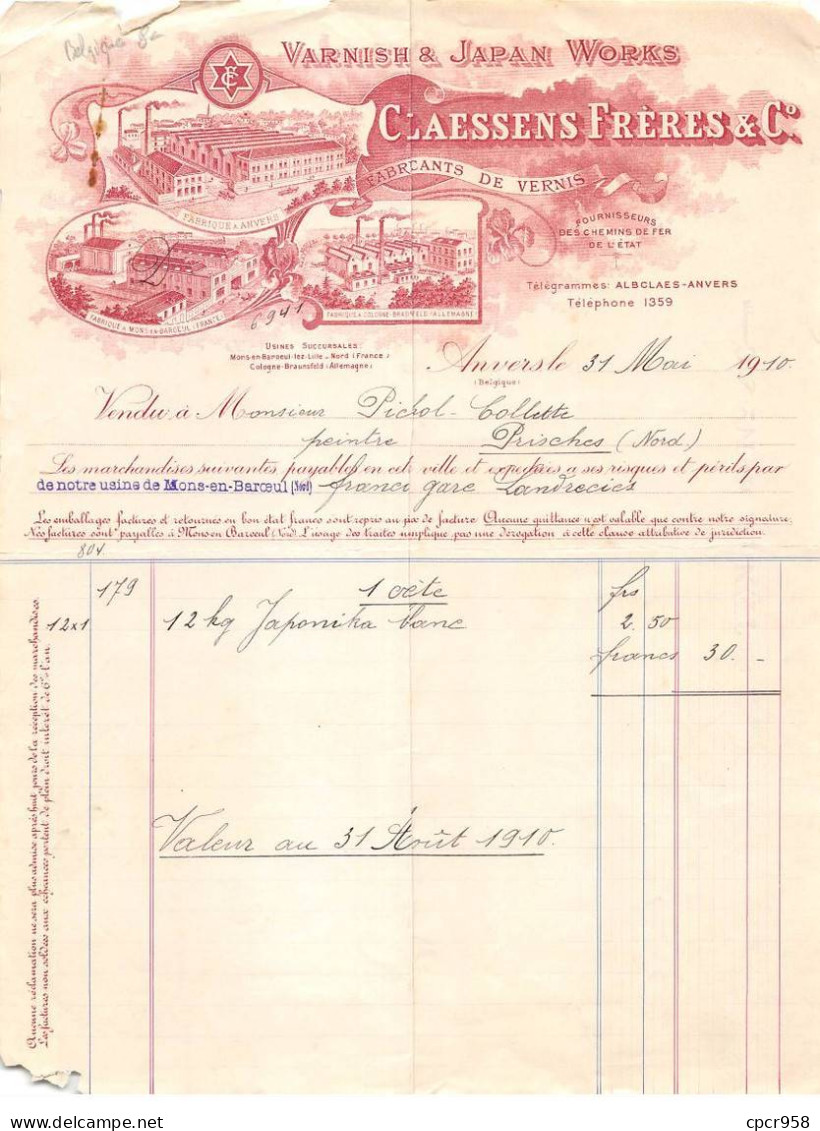 Belgique 8e
VARNISH & JAPAN WORKS
CF
CLAESSENS FRÈRES & Co.
FABRICANTS DE VERNIS
FABRIQUE À ANVERS
FOURNISSEURS
DES CHEMINS DE FER
DE L'ÉTAT
FABRIQUE À MONS-EN-BAROEUL (FRANCE)
FABRIQUE À COLOGNE-BRAUNSFELD (ALLEMAGNE)
6941
Télégrammes: ALBCLAES-ANVERS
Téléphone 1359
USINES SUCCURSALES:
Mons-en-Baroeul-lez-Lille - Nord (France)
Cologne-Braunsfeld (Allemagne)
Anvers le 31 Mai 1910.
(Belgique)
Vendu à Monsieur Pichol-Collette
peintre Prisches (Nord)
Les marchandises suivantes payables en cette ville et expédiées à ses risques et périls par
de notre usine de Mons-en-Barœul (Nord) franco gare Landrecies
Les emballages facturés et retournés en bon état franco sont repris au prix de facture. Aucune quittance n'est valable que contre notre signature.
Nos factures sont payables à Mons en Baroeul (Nord). L'usage des traites n'implique pas une dérogation à cette clause attributive de juridiction.
804
179 1 frs
12x1 12 kg Japonika blanc 2.50
francs 30. -
Valeur au 31 Août 1910.
Aucune réclamation ne sera plus admise après huit jours de la réception des marchandises.
Les factures non soldées aux échéances portent de plein droit intérêt de 6% l'an.
Website: cpcr958